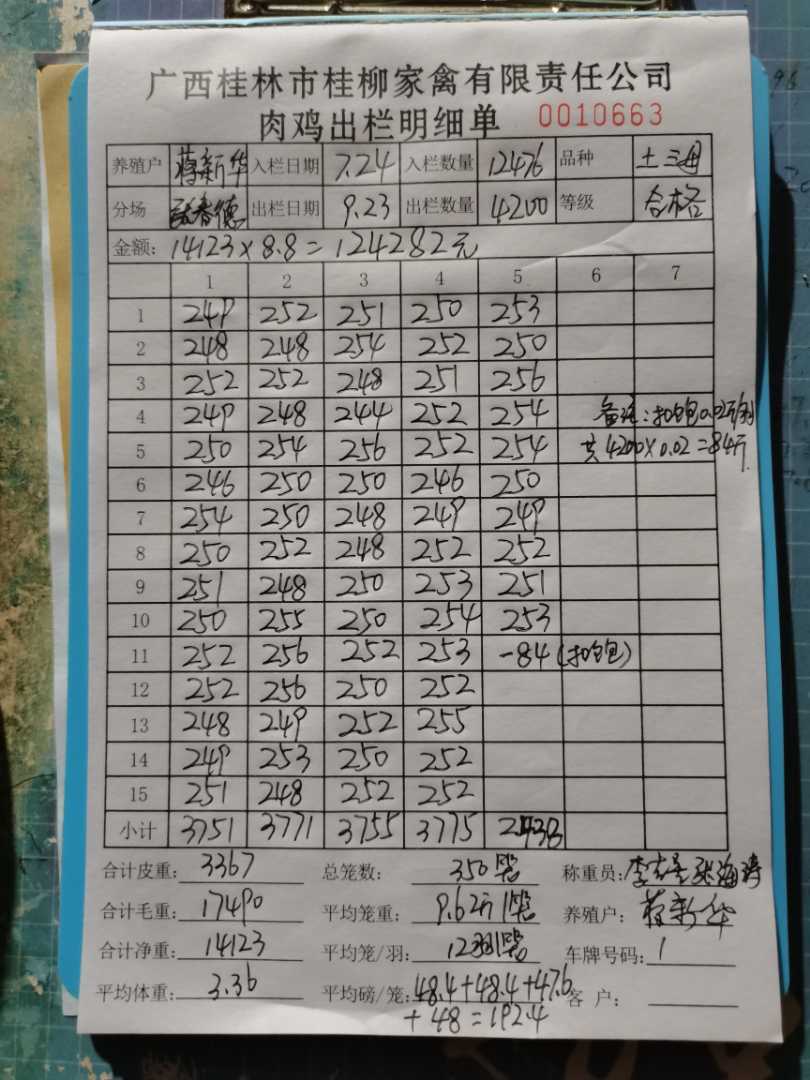 广西桂林市桂柳家禽有限责任公司
肉鸡出栏明细单 0010663
养殖户 蒋新华 入栏日期 7.24 入栏数量 12476 品种 土三母
分场 出栏日期 9.23 出栏数量 4200 等级 合格
金额: 14123×8.8=124282元
1 2 3 4 5 6 7
1 249 252 251 250 253
2 248 248 254 252 250
3 252 252 248 251 256
4 249 248 244 252 254 备注:扣包0.02斤/羽
5 250 254 256 252 254 共4200×0.02=84斤
6 246 250 250 246 250
7 254 250 248 249 249
8 250 252 248 252 252
9 251 248 250 253 251
10 250 255 250 254 253
11 252 256 252 253 -84(扣包)
12 252 256 250 252
13 248 249 252 255
14 249 253 250 252
15 251 248 252 252
小计 3751 3771 3755 3775 2438
合计皮重: 3367 总笼数: 350笼 称重员: 张海涛
合计毛重: 17490 平均笼重: 9.62斤/笼 养殖户: 蒋新华
合计净重: 14123 平均笼/羽: 12羽/笼 车牌号码: 1
平均体重: 3.36 平均磅/笼: 48.4+48.4+47.6 客户:
+48=192.4